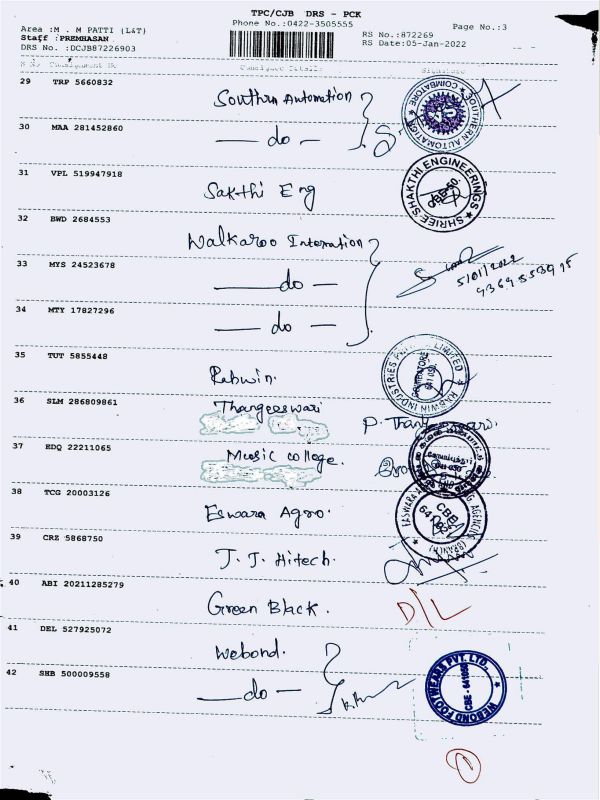 TPC/CJB DRS - PCK
Phone No.:0422-3505555
Page No.:3
Area :M . M PATTI (L&T)
Staff :PREMHASAN
DRS No. :DCJB87226903
RS No.:872269
RS Date:05-Jan-2022
Signature
29 TRP 5660832 Southrn Automation
SOUTHERN AUTOMATION COIMBATORE
30 MAA 281452860 — do —
31 VPL 519947918 Sakthi Eng
SHRIEE SHAKTHI ENGINEERINGS
32 BWD 2684553 Walkaroo Internation
33 MYS 24523678 — do —
5/01/2022
34 MTY 17827296 — do —
35 TUT 5855448 Rabwin.
RABWIN INDUSTRIES LIMITED COIMBATORE
36 SLM 286809861 Thangeeswari
37 EDQ 22211065 Music college.
38 TCG 20003126 Eswara Agro.
CBE
39 CRZ 5868750 J. J. Hitech.
40 ABI 20211285279 Green Black. D/L
41 DEL 527925072 Webond.
WEBOND FOOTWEARS PVT. LTD.
CBE - 641050
42 SHB 500009558 — do —
1